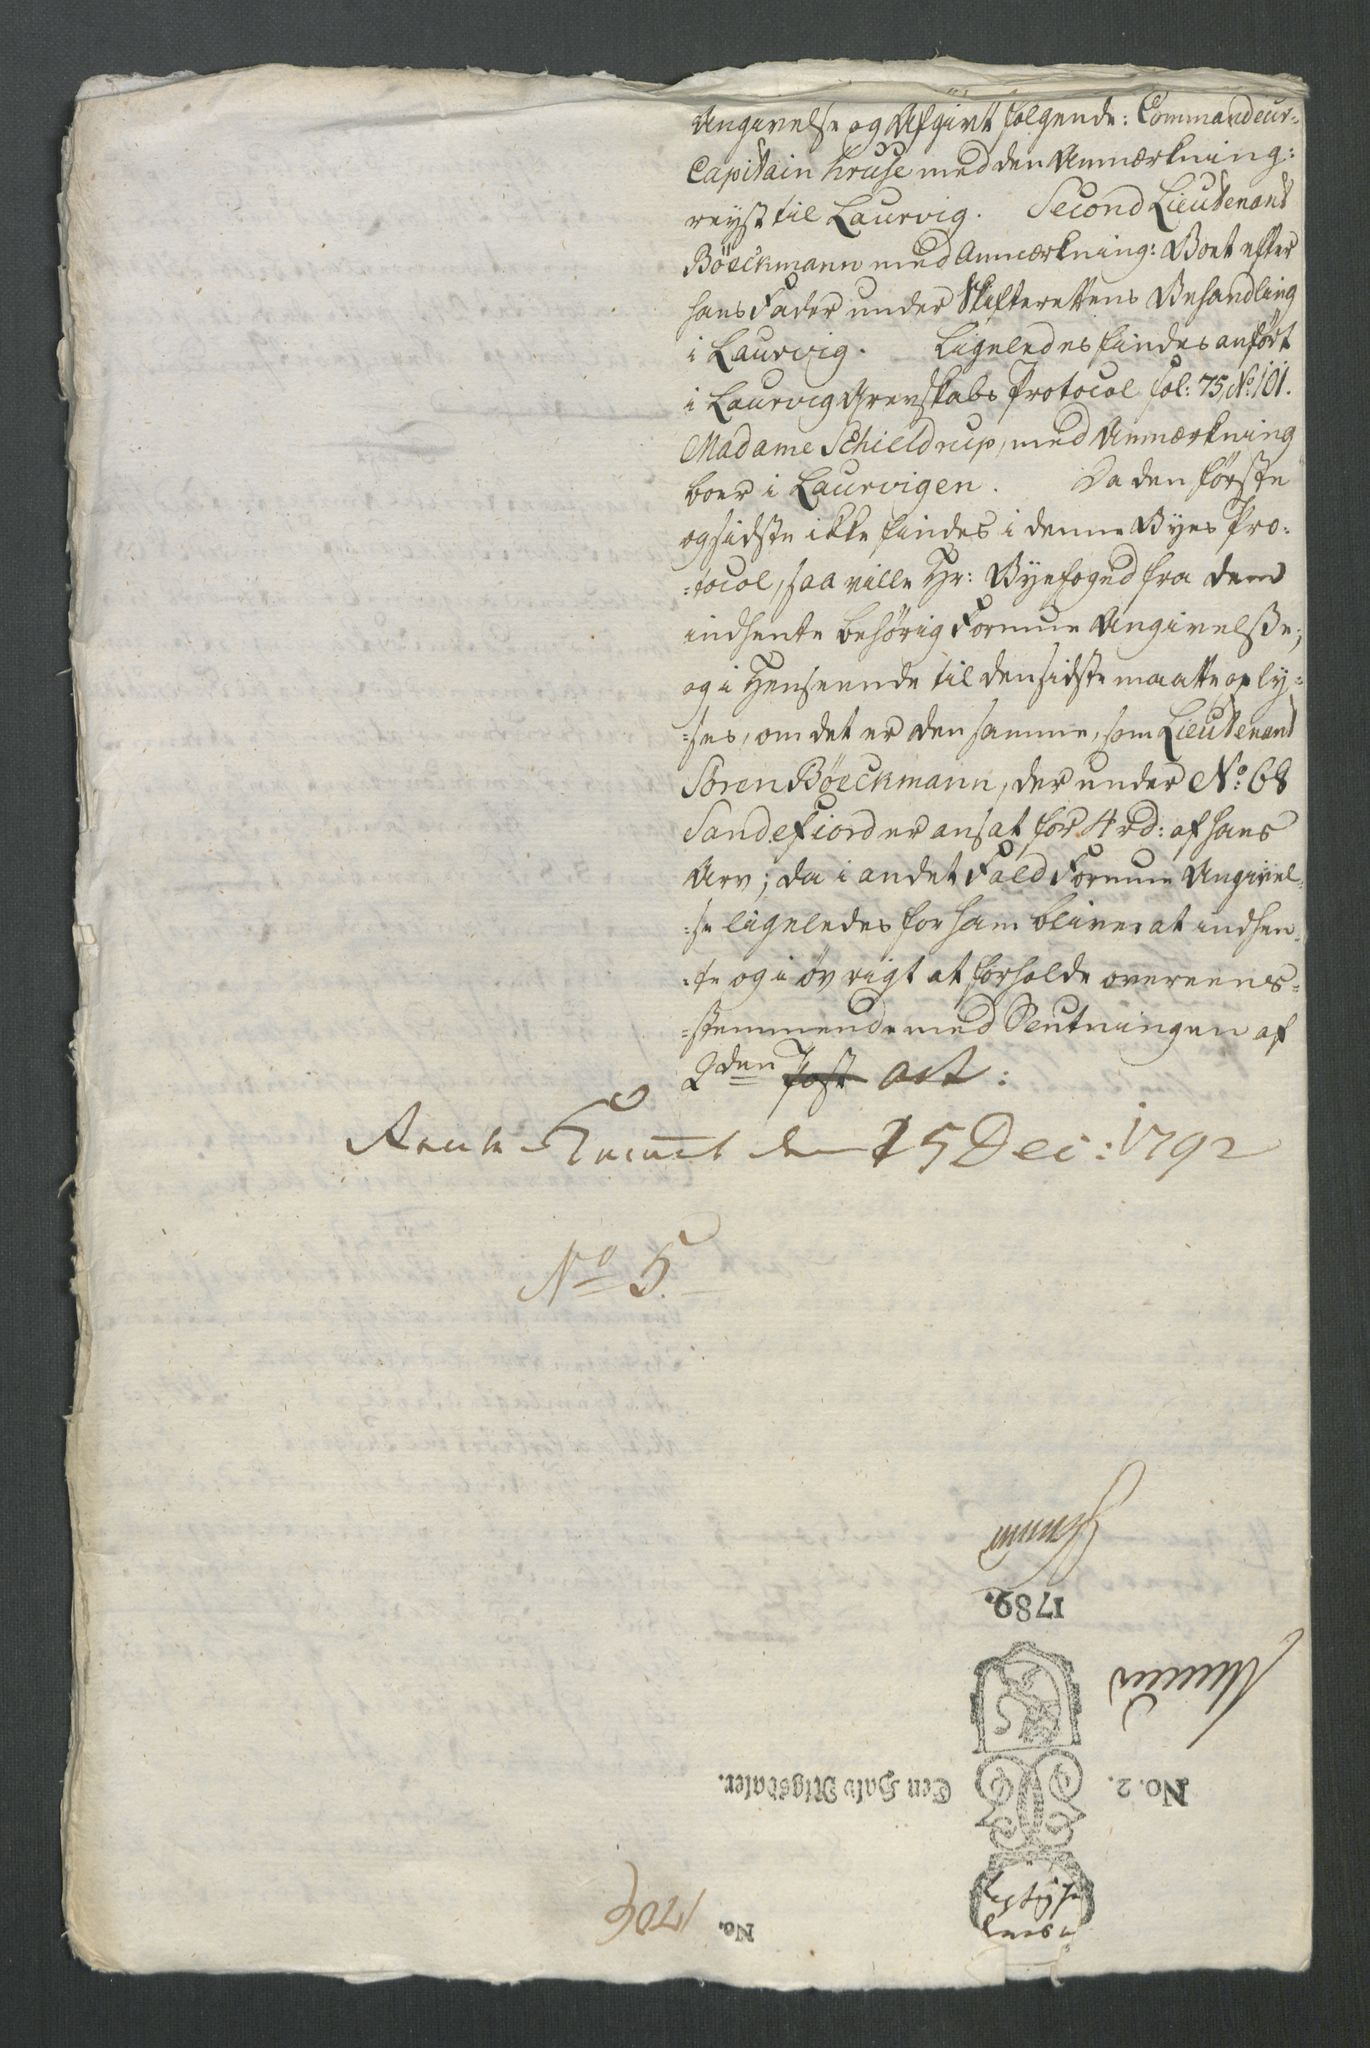 Angivelse og Afgivt følgende: Commandeur-
Capitain Kruse med den Anmærkning:
reyst til Laurvig. Second Lieutenant
Böeckmann med Anmærkning: Boet efter
hans Fader under Skifterettens Behandling
i Laurvig. Ligeledes findes anført
i Laurvig Grevskabs Protocol fol: 75, No: 101.
Madame Schieldrup, med Anmærkning
boer i Laurvigen. Da den første
og sidste ikke findes i denne Byes Pro-
:tocol, saa ville Hr: Byefoged fra dem
indhente behørig Formue Angivelse;
og i Henseende til den sidste maatte oply-
:ses, om det er den samme, som Lieutenant
Sören Böeckmann, der under No: 68
Sandefiord er ansat for 4 rd: af hans
Arv; da i andet Fald Formue Angivel-
:se ligeledes for ham bliver at indhen-
:te og i øvrigt at forholde overeens-
:stemmende med Slutningen af
2den Post Ant:
Rente Kammeret den 15 Dec: 1792
No 5.
1789.
No. 2. Een Halv Rigsdaler.
No. 1706